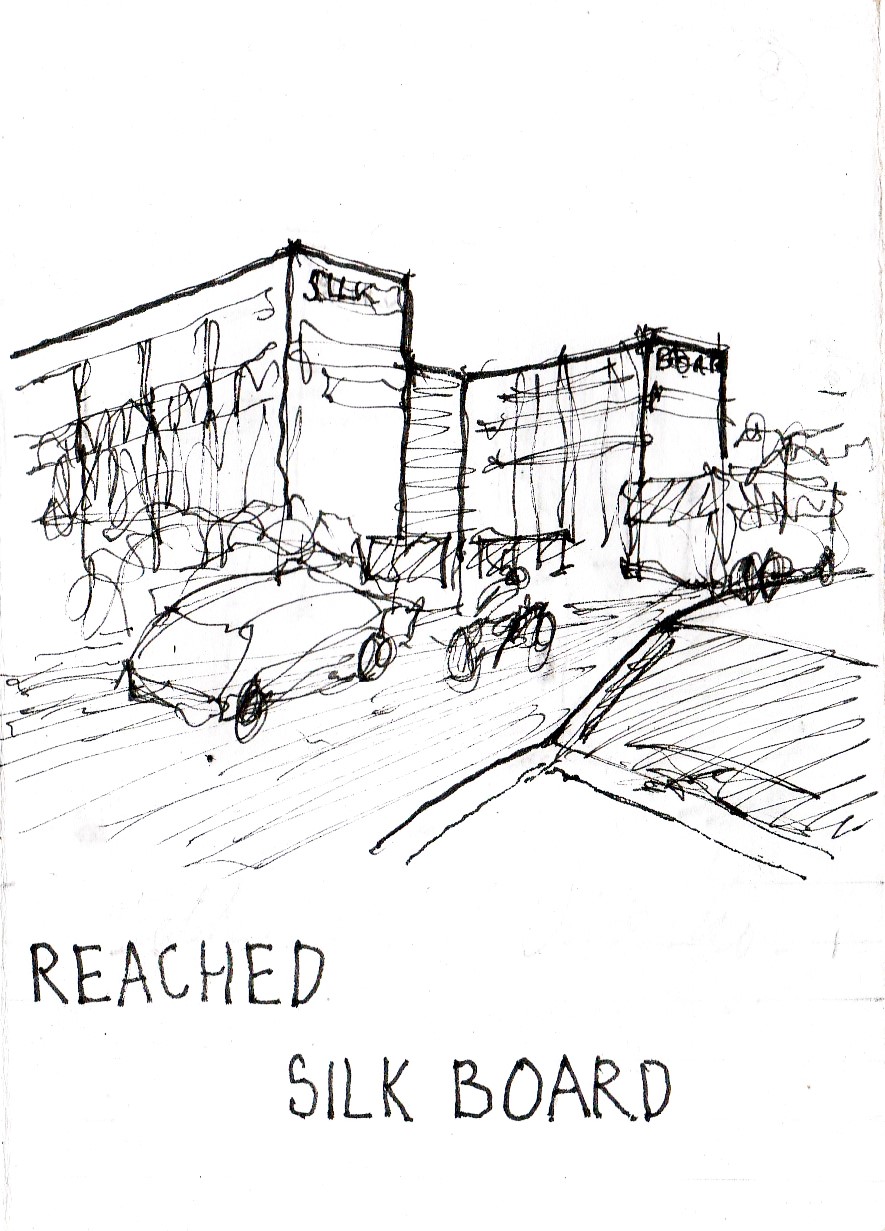 SILK
BOAR
REACHED
SILK BOARD